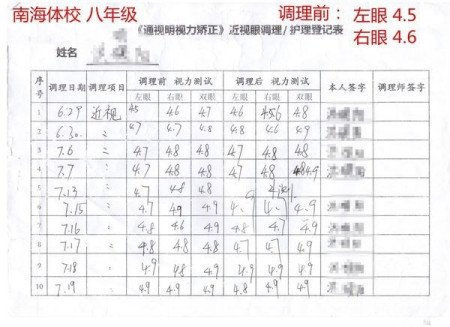 南海体校 八年级
调理前：左眼 4.5
右眼 4.6
《通视明视力矫正》近视眼调理/护理登记表
姓名
序号 调理日期 调理项目 调理前 视力测试 调理后 视力测试 本人签字 调理师签字
左眼 右眼 双眼 左眼 右眼 双眼
1 6.29 近视 4.5 4.6 4.7 4.6 4.8
2 6.30 〃 4.7 4.7 4.8 4.8 4.6 4.9
3 7.6 〃 4.7 4.8 4.8 4.7 4.8 4.8
4 7.7 〃 4.7 4.8 4.8 4.8 4.8 4.9
5 7.13 〃 4.7 4.8 4.8
6 7.15 〃 4.7 4.9 4.9 4.9
7 7.16 〃 4.8 4.6 4.9 4.8 4.7 4.9
8 7.17 〃 4.8 4.8 4.8 4.7 4.7 4.9
9 7.18 〃 4.9 4.8 4.9 4.9 4.8 4.9
10 7.19 〃 4.9 4.9 4.9 4.8 4.9 4.9